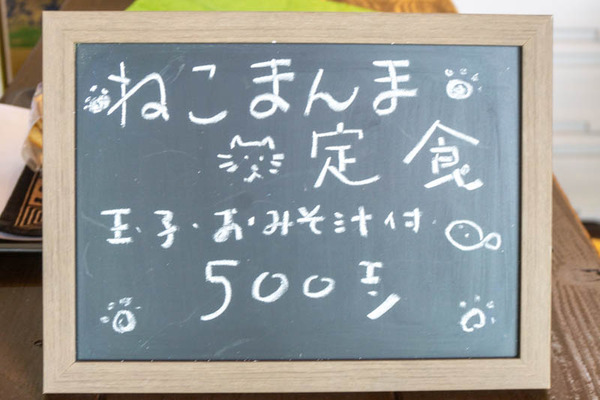 ねこまんま
定食
玉子・おみそ汁付
500エン